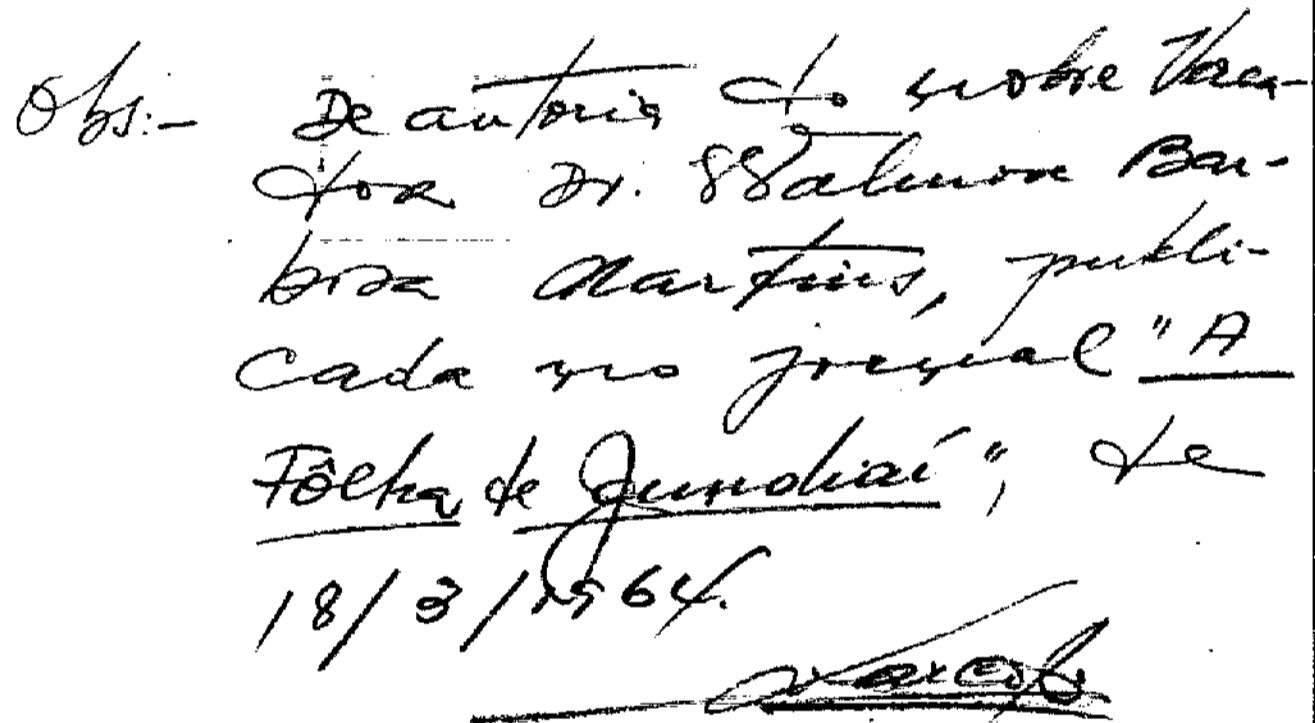 Obs:- De autoria do nobre Verea-
dor Dr. Walmor Bar-
bosa Martins, publi-
cada no jornal "A
Fôlha de Jundiaí", de
18/3/1964.